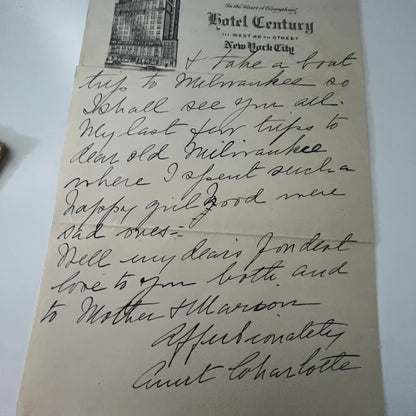 In the Heart of Everything
Hotel Century
111 WEST 46TH STREET
New York City
& take a boat
trip to Milwaukee so
I shall see you all.
My last few trips to
dear old Milwaukee
where I spent such a
happy girlhood were
sad ones =
Well my dears fondest
love to you both and
to Mother & Marion
Affectionately
Aunt Charlotte